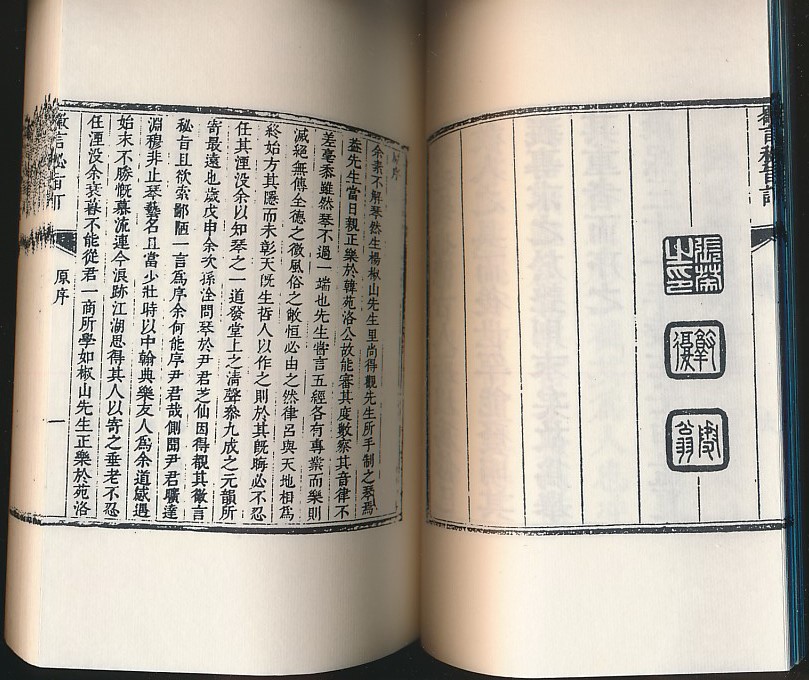 張榮
之印
原序
余素不解琴然生楊椒山先生里尚得觀先生所手制之琴焉
葢先生當日親正樂於韓苑洛公故能審其度數察其音律不
差毫黍雖然琴不過一端也先生嘗言五經各有專業而樂則
滅絕無傳全德之徵風俗之敝恒必由之然律呂與天地相爲
終始方其隱而未彰天旣生哲人以作之則於其旣晦必不忍
任其湮没余以知琴之一道發堂上之淸聲叅九成之元韻所
寄最遠也歲戊申余次孫淦問琴於尹君芝仙因得觀其徽言
秘旨且欲索鄙陋一言爲序余何能序尹君哉側聞尹君曠達
淵穆非止琴藝名且當少壯時以中翰典樂友人爲余道感遇
始末不勝慨慕流連今浪跡江湖思得其人以寄之垂老不忍
任湮没余衰暮不能從君一商所學如椒山先生正樂於苑洛
徽言秘旨訂
原序
一